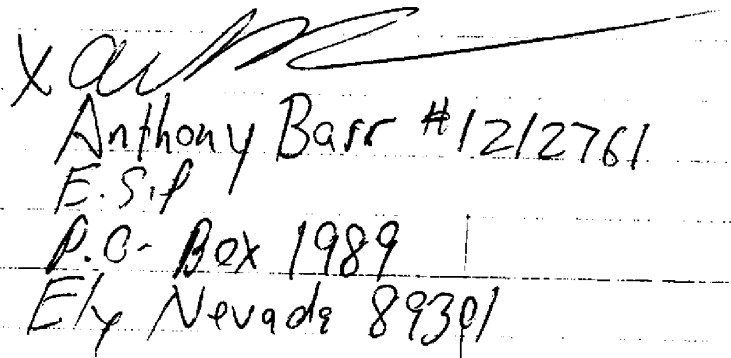 x
Anthony Barr #1212761
E.S.P
P.O. Box 1989
Ely Nevada 89301